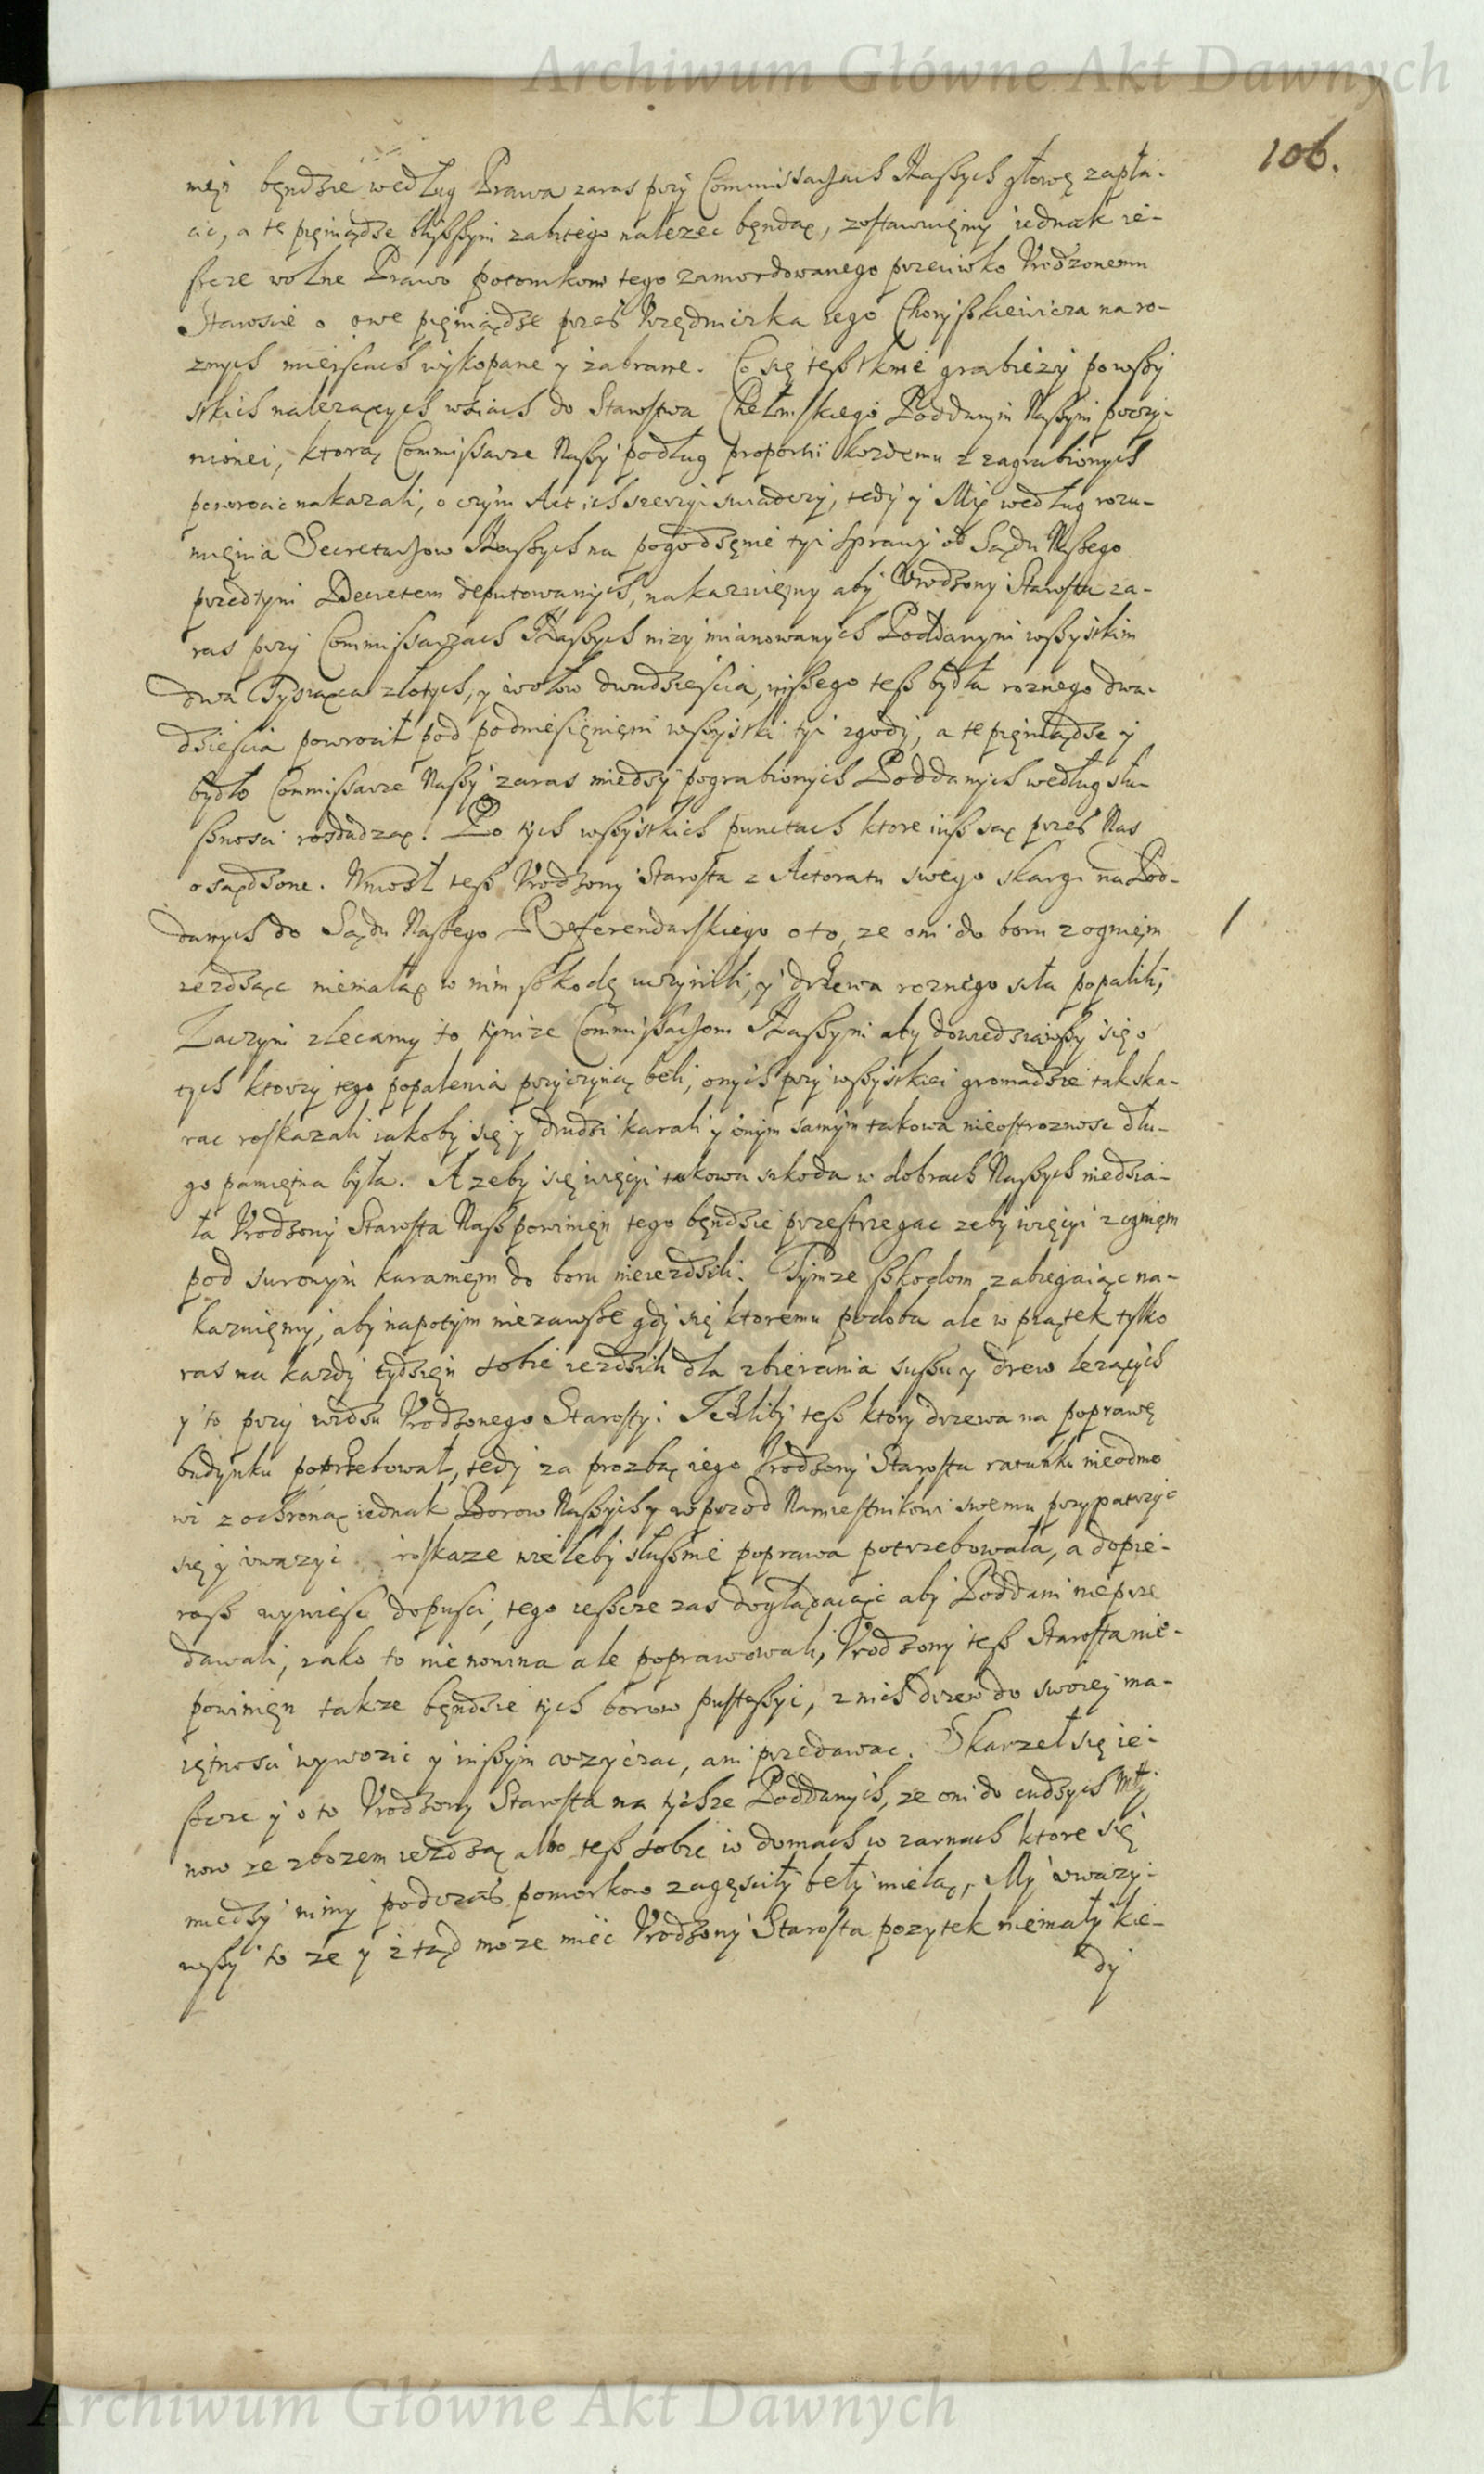 Archiwum Główne Akt Dawnych
106.
nięn będzie według Prawa zaras przy Commissarzach Naszych głowę zapła-
cic, a te pięniądze bliższym zabitego nalezec będąę, zostawuięmy iednak ie-
szcze wolne Prawo potomkom tego zamordowanego przeciwko Vrodzonemu
Staroscie o owe pięniądze przeß Vrzędniczka iego Choryßkiewicza na ro-
znych mieyscach wykopane y zabrane. Co się teß tknie grabiezy po wszy
stkich nalezących wsiach do Starostwa Chełmskiego Poddanym Naszym poczy-
nionei, ktorą Commissarze Naszy podług proporcii kozdemu z zagrabionych
powrocic nakazali, o czym Act ich szerzyi swiadczy, tedy y My według rozu-
mięnia Secretarzow Naszych na pogodzęnie tyi sprawy od Sądu Naszego
przedtym Decretem deputowanych, nakazuięmy aby Vrodzony Starosta za-
ras przy Commissarzach Naszych nizy mianowanych Poddanym wszystkim
dwa Tysiąca złotych, y wołow dwudziescia, inszego teß bydła roznego dwa-
dziescia powrocił pod podniesięnięm wszystki tyi zgody, a te pięniądze y
bydło Commissarze Naszy zaras miedzy pograbionych Poddanych według słu-
sznosci rozdadzą. Po tych wszystkich punctach ktore iuß są przeß Nas
osądzone. Wniosł teß Vrodzony Starosta z Actoratu swego skargi na Pod-
danych do Sądu Naszego Referendarskiego o to, ze oni do boru z ognięm
iezdząc niemałą w nim szkodę uczynili, y drzewa roznego siła popalili,
Zaczym zlecamy to tymze Commissarzom Naszym aby dowiedziawszy się o
tych ktorzy tego popalenia przyczyną beli, onych przy wszystkiei gromadzie tak ska-
rac roskazali iakoby się y drudzi karali y onym samym takowa nieostroznosc dłu-
go pamiętna była. A zeby się więcyi takowa szkoda w dobrach Naszych niedzia-
ła Vrodzony Starosta Naß powinięn tego będzie przestrzegac zeby więcyi z ognięm
pod surowym karanięm do boru nieiezdzili. Tymze szkodom zabiegaiąc na-
kazuięmy, aby napotym niezawsze gdy się ktoremu podoba ale w piątek tylko
ras na kazdy tydzięn sobie iezdzili dla zbierania suszu y drew lezących
y to przy wrdzu Vrodzonego Starosty. Jeżliby teß ktory drzewa na poprawę
budynku potrzebował, tedy za prozbą iego Vrodzony Starosta ratunku nieodmo
wi z ochroną iednak Borow Naszych y wprzod Namiestnikowi swemu przypatrzyc
się y uwazyc roskaze wieleby słusznie poprawa potrzebowała, a dopie-
roß wywiesc dopusci, tego ieszcze zas doglądaiąc aby Poddani nieprze
dawali, iako to nienowina ale poprawowali, Vrodzony teß Starosta nie-
powinięn takze będzie tych borow pustoszyc, z nich drzew do swoiey ma-
iętnosci wywozic y inszym uzyczac, ani przedawac. Skarzeł się ie-
szcze y o to Vrodzony Starosta na tychze Poddanych, ze oni do cudzych Mły
now ze zbozem iezdzą albo teß sobie w domach w zarnach ktore się
miedzy nimy podczas pomorkow zagęsciły beły mielą, My uwazy-
wszy to ze y ztąd moze miec Vrodzony Starosta pozytek niemały kie-
dy
Archiwum Główne Akt Dawnych